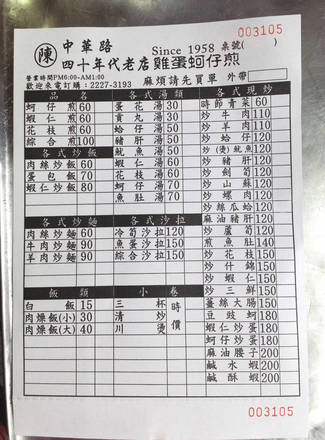 003105
陳 中華路 Since 1958 桌號( )
四十年代老店雞蛋蚵仔煎
營業時間PM6:00-AM1:00
歡迎來電訂購：2227-3193 麻煩請先買單 外帶
品名
蚵仔煎 60
蝦仁煎 60
花枝煎 60
綜合煎 100
各式炒飯
肉絲炒飯 60
蛋包飯 70
蝦仁炒飯 80
各式炒麵
肉絲炒麵 60
牛肉炒麵 90
羊肉炒麵 90
飯類
白飯 15
肉燥飯(小) 30
肉燥飯(大) 40
各式湯類
蛋花湯 30
貢丸湯 30
蛤仔湯 50
豬肝湯 50
魷魚湯 50
蝦仁湯 60
花枝湯 60
蚵仔湯 70
魚肚湯 70
各式沙拉
冷筍沙拉 120
魚蛋沙拉 150
綜合沙拉 150
小卷
三杯
清炒
川燙
時價
各式現炒
時節青菜 60
炒牛肉 110
炒羊肉 110
炒蛤仔 120
炒(燙)魷魚 120
炒豬肝 120
炒劍筍 120
炒山蘇 120
炒螺肉 120
炒絲瓜蛤 120
麻油豬肝 120
炒蘆筍 120
煎魚肚 140
炒花枝 150
炒什錦 150
炒蝦仁 150
炒三鮮 150
薑絲大腸 150
豆豉蚵 180
蝦仁炒蛋 180
蚵仔炒蛋 180
麻油腰子 200
鹹水蝦 200
鹹酥蝦 200
003105